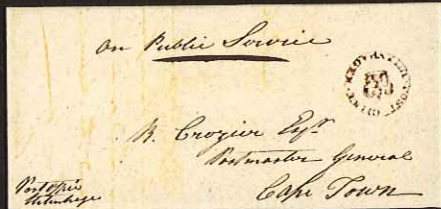 On Public Service
R. Crozier Esqr
Postmaster General
Cape Town
Post Office
Uitenhage